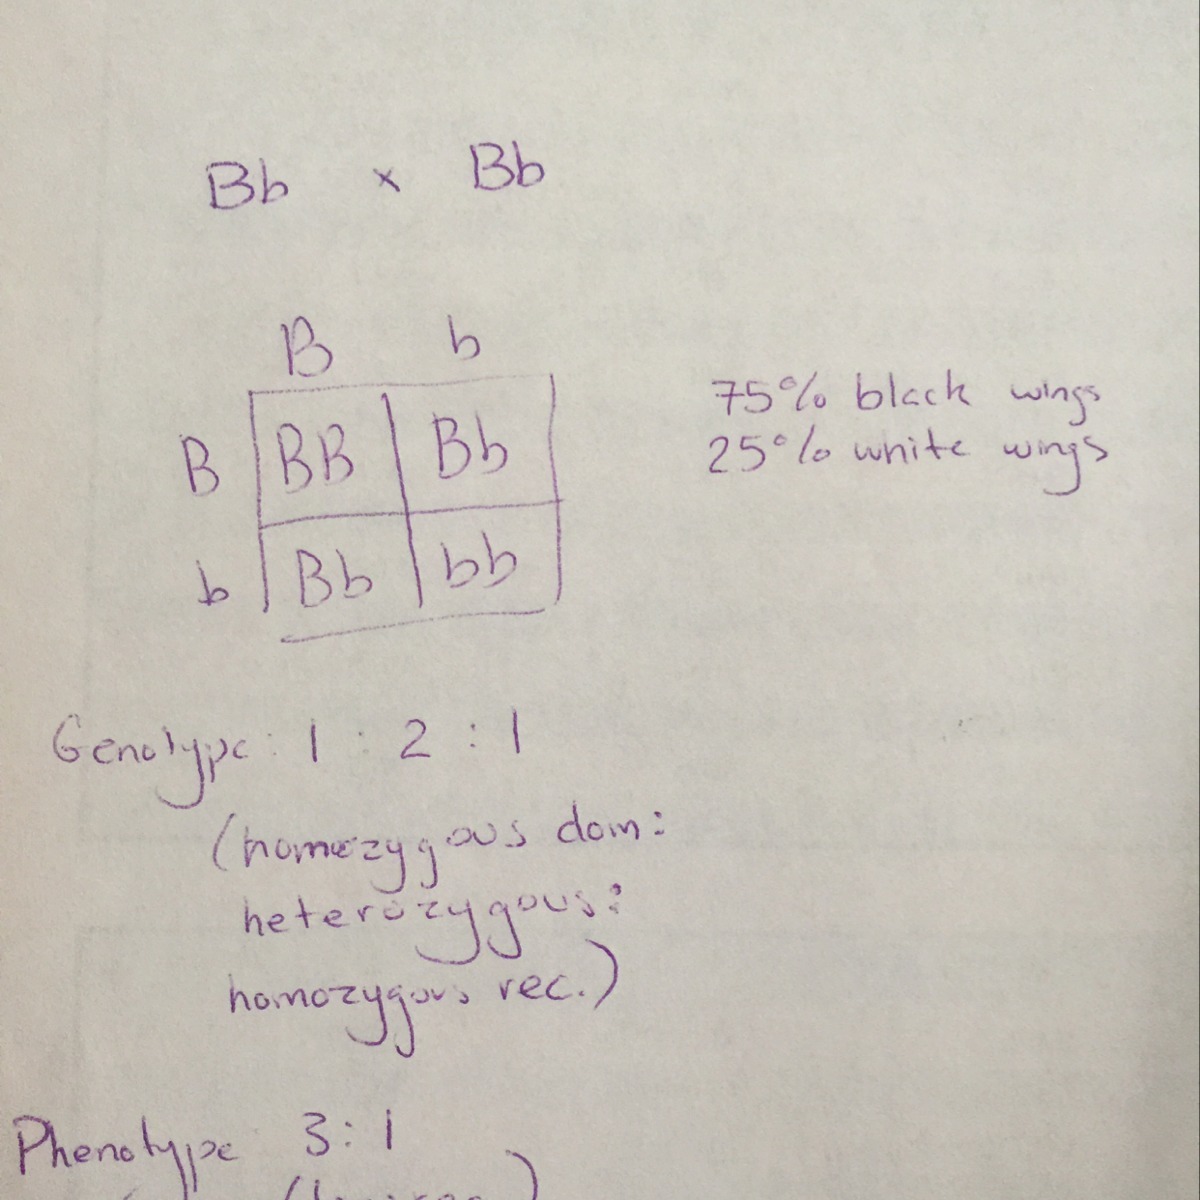 Bb x Bb
B b
B BB Bb
b Bb bb
75% black wings
25% white wings
Genotype: 1 : 2 : 1
(homozygous dom:
heterozygous:
homozygous rec.)
Phenotype 3:1